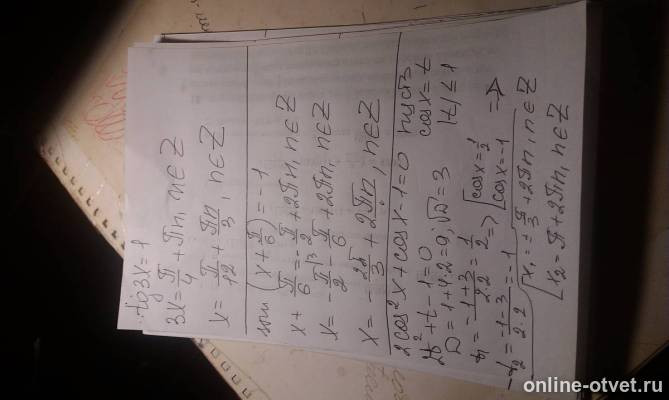 tg3x=1
3x=π/4+πn, n∈Z
x=π/12+πn/3, n∈Z
sin(x+π/6)=-1
x+π/6=-π/2+2πn, n∈Z
x=-π/2-π/6+2πn, n∈Z
x=-2π/3+2πn, n∈Z
2cos²x+cosx-1=0 пусть
cosx=t
2t²+t-1=0 |t|≤1
D=1+4·2=9; √D=3
t₁=-1+3/2·2=1/2 => [cosx=1/2
t₂=-1-3/2·2=-1 cosx=-1 =>
[x₁=±π/3+2πn, n∈Z
x₂=π+2πn, n∈Z
online-otvet.ru